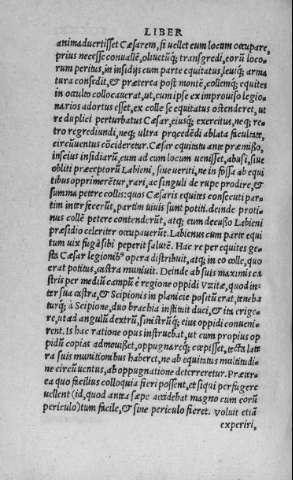 LIBER
animaduertisset Cæsarem, si uellet eum locum occupare,
prius necesse conuallē, oliuetūq; transgredi, eorū loco-
rum peritus, in insidijs cum parte equitatus, leuiq; arma
tura consedit, & præterea post montē, collemq; equites
in occulto collocauerat, ut, cum ipse ex improuiso legio-
narios adortus esset, ex colle se equitatus ostenderet, ut
re duplici perturbatus Cæsar, eiusq; exercitus, neq; re-
tro regrediundi, neq; ultra procedēdi ablata facultate,
circūuentus cōcideretur. Cæsar equitatu ante præmisso,
inscius insidiarū, cum ad eum locum uenisset, abusi, siue
obliti præceptorū Labieni, siue ueriti, ne in fossa ab equi
tibus opprimerētur, rari, ac singuli de rupe prodire, &
summa petere collis: quos Cæsaris equites consecuti par-
tim interfecerūt, partim uiuis sunt potiti. deinde proti-
nus collē petere contenderūt, atq; eum decusso Labieni
præsidio celeriter occupauerūt. Labienus cum parte equi
tum uix fuga sibi peperit salutē. Hac re per equites ge-
sta Cæsar legionibus opera distribuit, atq; in eo colle, quo
erat potitus, castra muniuit. Deinde ab suis maximis ca
stris per mediū campū è regione oppidi Vzitæ, quod in-
ter sua castra, & Scipionis in planicie positū erat, teneba
turq; à Scipione, duo brachia instituit duci, & ita erige-
re, ut ad angulū dextrū, sinistrūq; eius oppidi conueni-
rent. Is hac ratione opus instruebat, ut cum propius op-
pidū copias admouisset, oppugnareq; cœpisset, tecta late
ra suis munitionibus haberet, ne ab equitatus multitudi-
ne circūuentus, ab oppugnatione deterreretur. Præter-
ea quo facilius colloquia fieri possent, et si qui perfugere
uellent (id, quod antea sæpe accidebat magno cum eorū
periculo) tum facile, & sine periculo fieret. voluit etiā
experiri,